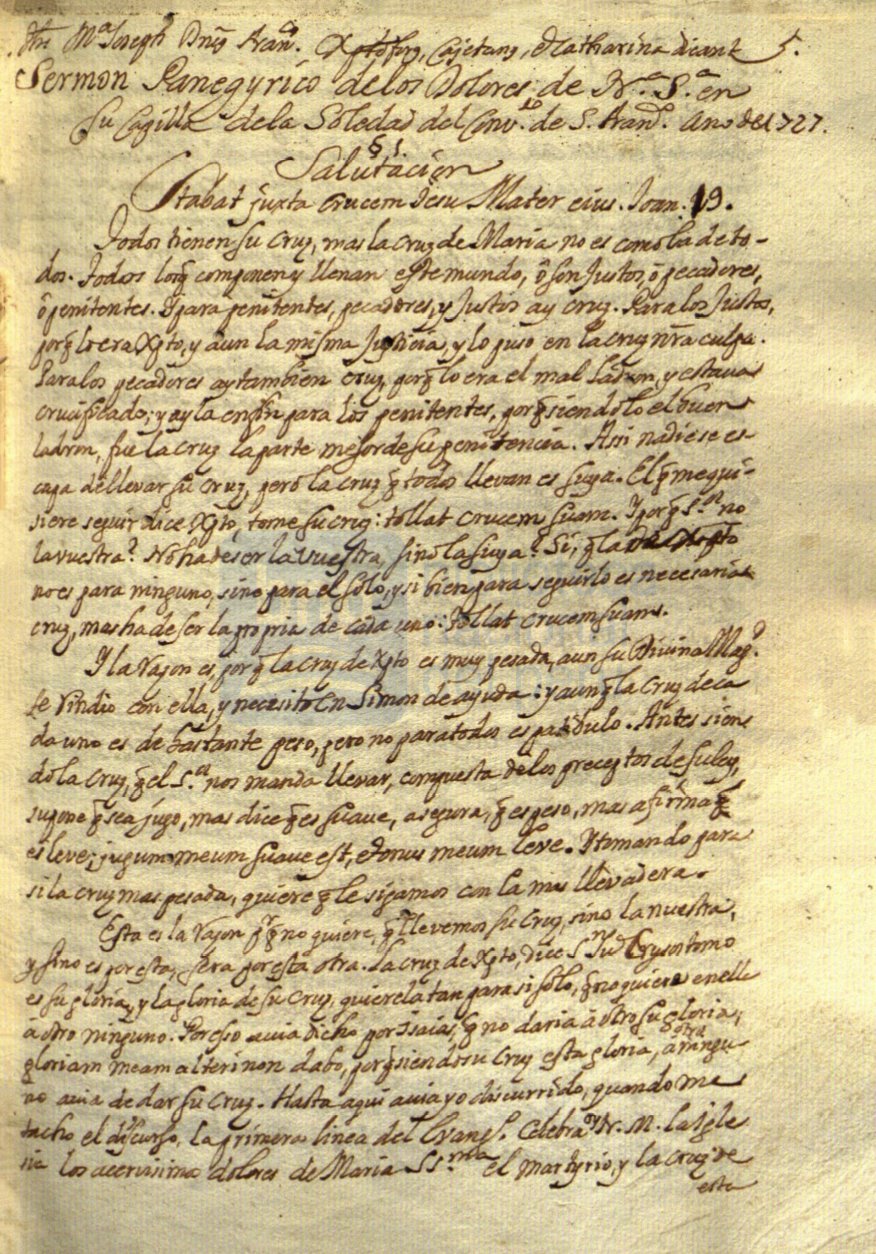 Mª Joseph Dns Franco. Xptofors, Cajetans, & Catharina dicant S.
Sermon Panegyrico de los Dolores de N.ª S.ª en
su Capilla de la Soledad del Convto. de S. Franco. Año de 1727.
§ 1.
Salutacion
Stabat juxta Crucem Jesu Mater eius. Joan. 19.
Todos tienen su Cruz, mas la cruz de Maria no es como la de to-
dos. Todos los q componen y llenan este mundo, ò son Justos, ò pecadores,
ò penitentes. Y para penitentes, pecadores, y Justos ay cruz. Para los Justos,
porq lo era Xpto, y aun la misma Justicia, y lo puso en la cruz nrã culpa.
Para los pecadores ay tambien cruz, porq lo era el mal ladron, y estava
crucificado; y ay la en fin para los penitentes, porq siendolo el buen
ladron, fue la cruz la parte mejor de su penitencia. Assi nadie se es-
capa de llevar su cruz, pero la cruz q todos llevan es suya. El q me qui-
siere seguir dice Xpto, tome su cruz: tollat crucem suam. Y porq S.or no
la vuestra? No ha de ser la vuestra, sino la suya? Si, q la de Xpto
no es para ninguno, sino para el solo, y si bien para seguirlo es necesaria
cruz, mas ha de ser la propria de cada uno: Tollat crucem suam.
Y la razon es, porq la cruz de Xpto es muy pesada, aun su Divina Magd.
se rindio con ella, y necesitò un Simon de ayuda: y aunq la cruz de ca
da uno es de bastante peso, pero no para todos es patibulo. Antes sien
do la cruz, q el S.or nos manda llevar, compuesta de los preceptos de su ley,
supone q sea jugo, mas dice q es suave, asegura, q es peso, mas afirma q
es leve; jugum meum suave est, & onus meum leve. Y tomando para
si la cruz mas pesada, quiere q le sigamos con la mas llevadera.
Esta es la razon prq no quiere, q llevemos su Cruz, sino la nuestra,
y sino es por esta, serà por esta otra. La cruz de Xpto, dice S. Jun Crysostomo
es su gloria, y la gloria de su Cruz, quierela tan para si solo, q no quiere en ella
à otro ninguno. Por eso avia dicho por Isaias, q no daria à otro su gloria,
gloriam meam alteri non dabo, porq siendo su Cruz esta gloria, à otro ningu
no avia de dar su Cruz. Hasta aqui avia yo discurrido, quando me
tacho el discurso, la primera linea del Evang.º Celebra oy N. M. la Igle
sia los acerrisimos dolores de Maria SS.ma el martyrio, y la cruz de
esta